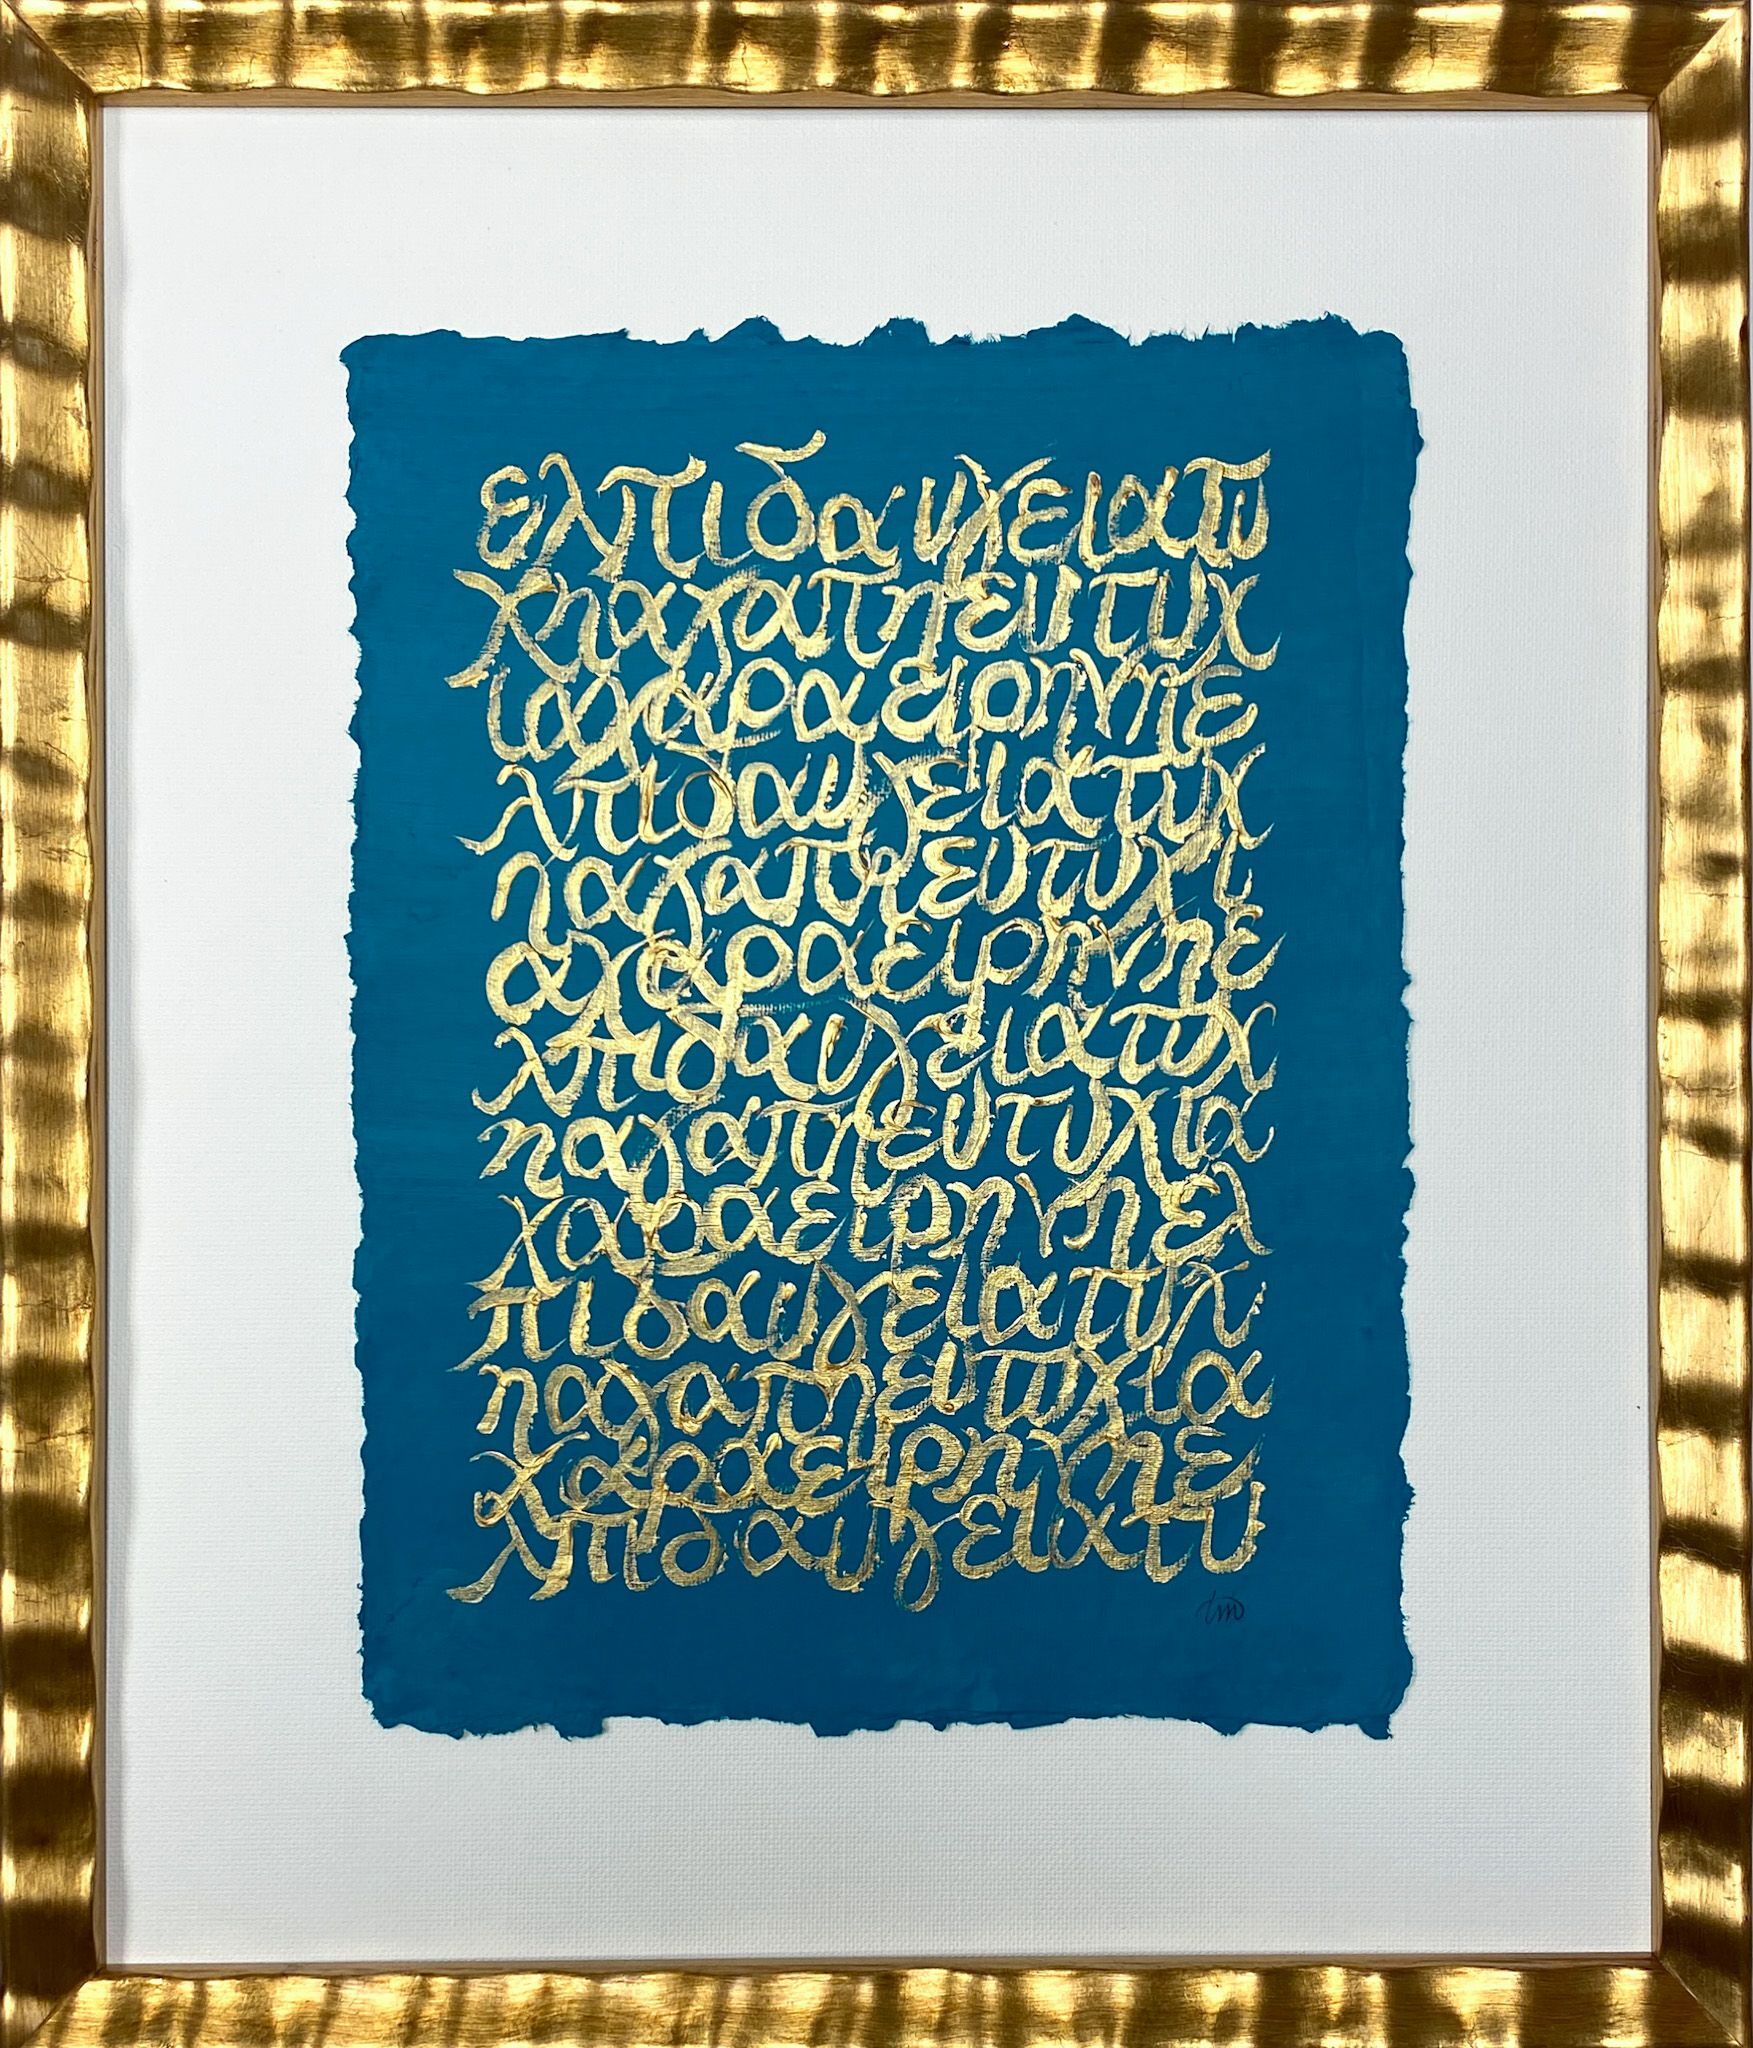 ελπιδαυγειατυ
χηαγαπηευτυχ
ιαχαραειρηνηε
λπιδαυγειατυχ
ηαγαπηευτυχι
αχαραειρηνηε
λπιδαυγειατυχ
ηαγαπηευτυχια
χαραειρηνηελ
πιδαυγειατυχ
ηαγαπηευτυχια
χαραειρηνηε
λπιδαυγειατυ